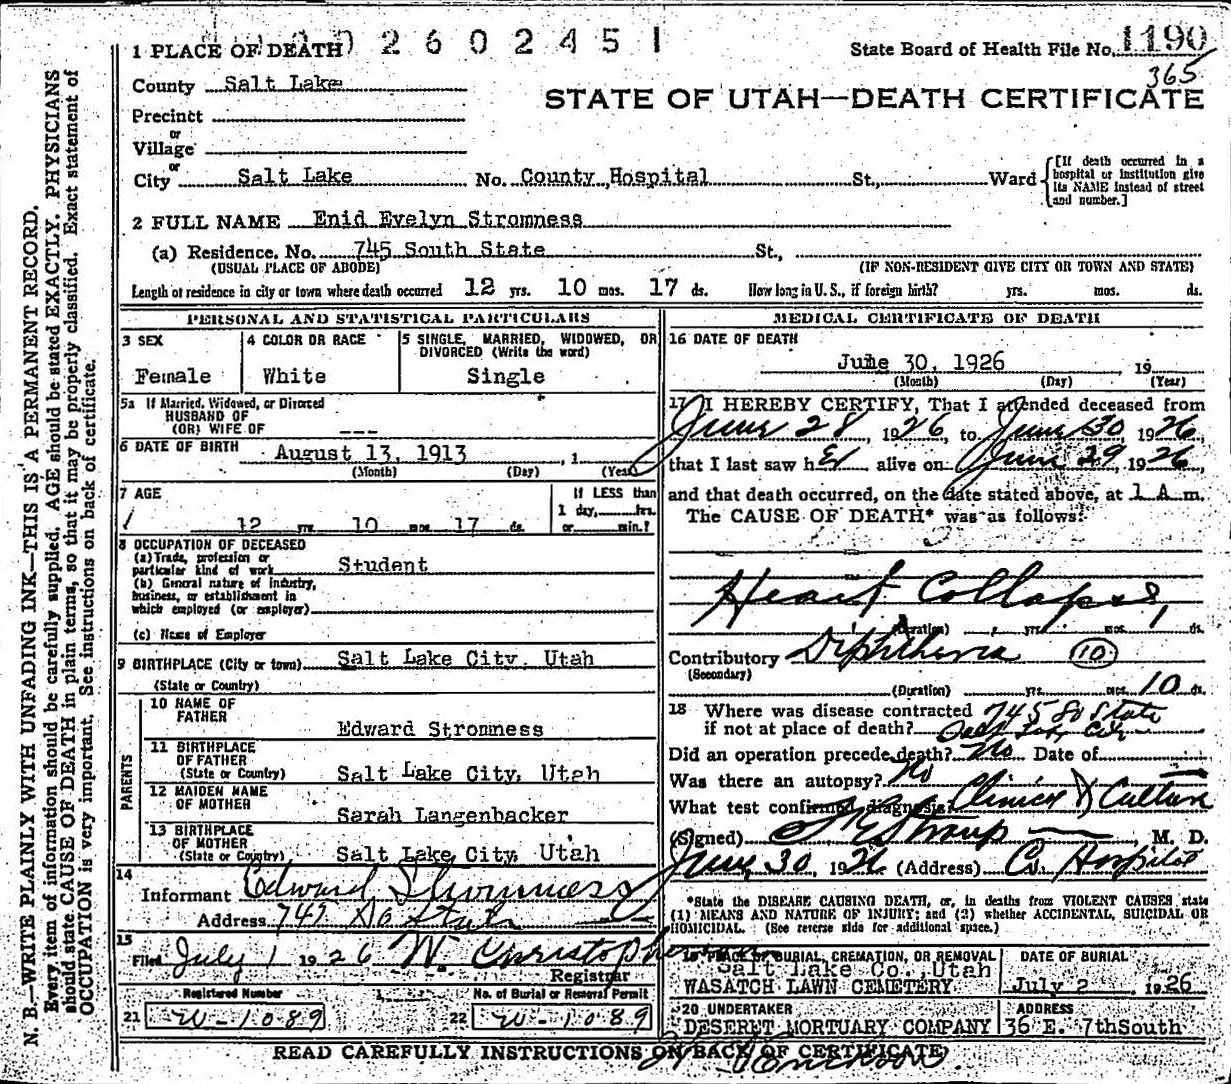 N. B.—WRITE PLAINLY WITH UNFADING INK—THIS IS A PERMANENT RECORD.
Every item of information should be carefully supplied. AGE should be stated EXACTLY. PHYSICIANS
should state CAUSE OF DEATH in plain terms, so that it may be properly classified. Exact statement of
OCCUPATION is very important. See instructions on back of certificate.
2602451
1 PLACE OF DEATH
State Board of Health File No. 1190
365
County Salt Lake
STATE OF UTAH—DEATH CERTIFICATE
Precinct
or
Village
or
City Salt Lake No. County Hospital St., Ward
[If death occurred in a
hospital or institution give
its NAME instead of street
and number.]
2 FULL NAME Enid Evelyn Stromness
(a) Residence. No. 745 South State St.,
(USUAL PLACE OF ABODE) (IF NON-RESIDENT GIVE CITY OR TOWN AND STATE)
Length of residence in city or town where death occurred 12 yrs. 10 mos. 17 ds. How long in U. S., if foreign birth? yrs. mos. ds.
PERSONAL AND STATISTICAL PARTICULARS
3 SEX
Female
4 COLOR OR RACE
White
5 SINGLE, MARRIED, WIDOWED, OR
DIVORCED (Write the word)
Single
5a If Married, Widowed, or Divorced
HUSBAND OF
(OR) WIFE OF ---
6 DATE OF BIRTH August 13, 1913, 1
(Month) (Day) (Year)
7 AGE
12 yrs. 10 mos. 17 ds.
If LESS than
1 day, hrs.
or min.?
8 OCCUPATION OF DECEASED
(a) Trade, profession or
particular kind of work Student
(b) General nature of industry,
business, or establishment in
which employed (or employer)
(c) Name of Employer
9 BIRTHPLACE (City or town) Salt Lake City, Utah
(State or Country)
PARENTS
10 NAME OF
FATHER
Edward Stromness
11 BIRTHPLACE
OF FATHER
(State or Country) Salt Lake City, Utah
12 MAIDEN NAME
OF MOTHER
Sarah Langenbacker
13 BIRTHPLACE
OF MOTHER
(State or Country) Salt Lake City, Utah
14
Informant Edward Stromness
Address 745 So State
15
Filed July 1 1926 W. Christopherson
Registrar
Registered Number
21 W-1089
No. of Burial or Removal Permit
22 W-1089
MEDICAL CERTIFICATE OF DEATH
16 DATE OF DEATH
June 30, 1926, 19
(Month) (Day) (Year)
17 I HEREBY CERTIFY, That I attended deceased from
June 28, 1926, to June 30 1926,
that I last saw her alive on June 29, 1926,
and that death occurred, on the date stated above, at 1 A m.
The CAUSE OF DEATH* was as follows:
Heart Collapse,
(Duration) yrs. mos. ds.
Contributory Diphtheria (10)
(Secondary)
(Duration) yrs. mos. 10 ds.
18 Where was disease contracted 745 So State
if not at place of death? Salt Lake City
Did an operation precede death? No Date of
Was there an autopsy? No
What test confirmed diagnosis? Clinical & Culture
(Signed) M. D.
June 30, 1926 (Address) Co. Hospital
*State the DISEASE CAUSING DEATH, or, in deaths from VIOLENT CAUSES state
(1) MEANS AND NATURE OF INJURY; and (2) whether ACCIDENTAL, SUICIDAL OR
HOMICIDAL. (See reverse side for additional space.)
19 PLACE OF BURIAL, CREMATION, OR REMOVAL
Salt Lake Co., Utah
WASATCH LAWN CEMETERY
DATE OF BURIAL
July 2, 1926
20 UNDERTAKER
DESERET MORTUARY COMPANY
ADDRESS
36 E. 7thSouth
READ CAREFULLY INSTRUCTIONS ON BACK OF CERTIFICATE